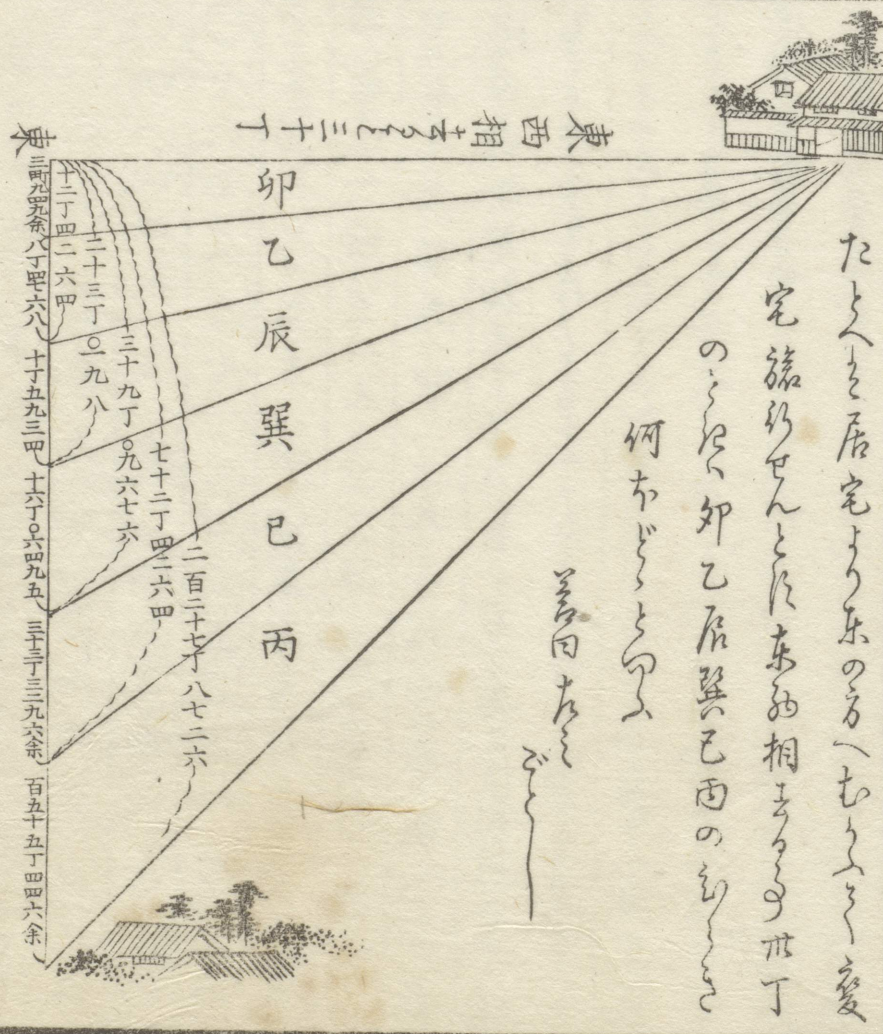 たとへば居宅より東の方へむかふて変
宅旅行せんとす東西相去る事卅丁
のときは卯乙辰巽巳丙のひらき
何ほどゝと問ふ
答曰左之
ごとし
東西相去ること三十丁
東
卯
乙
辰
巽
巳
丙
三町九四九余
八丁四七六八
十丁五九三四
十六丁〇六四九五
三十三丁三三九六余
百五十五丁四四六余
十二丁四二六四
二十三丁〇一九八
三十九丁〇九六七六
七十二丁四二六四
二百二十七丁八七二六